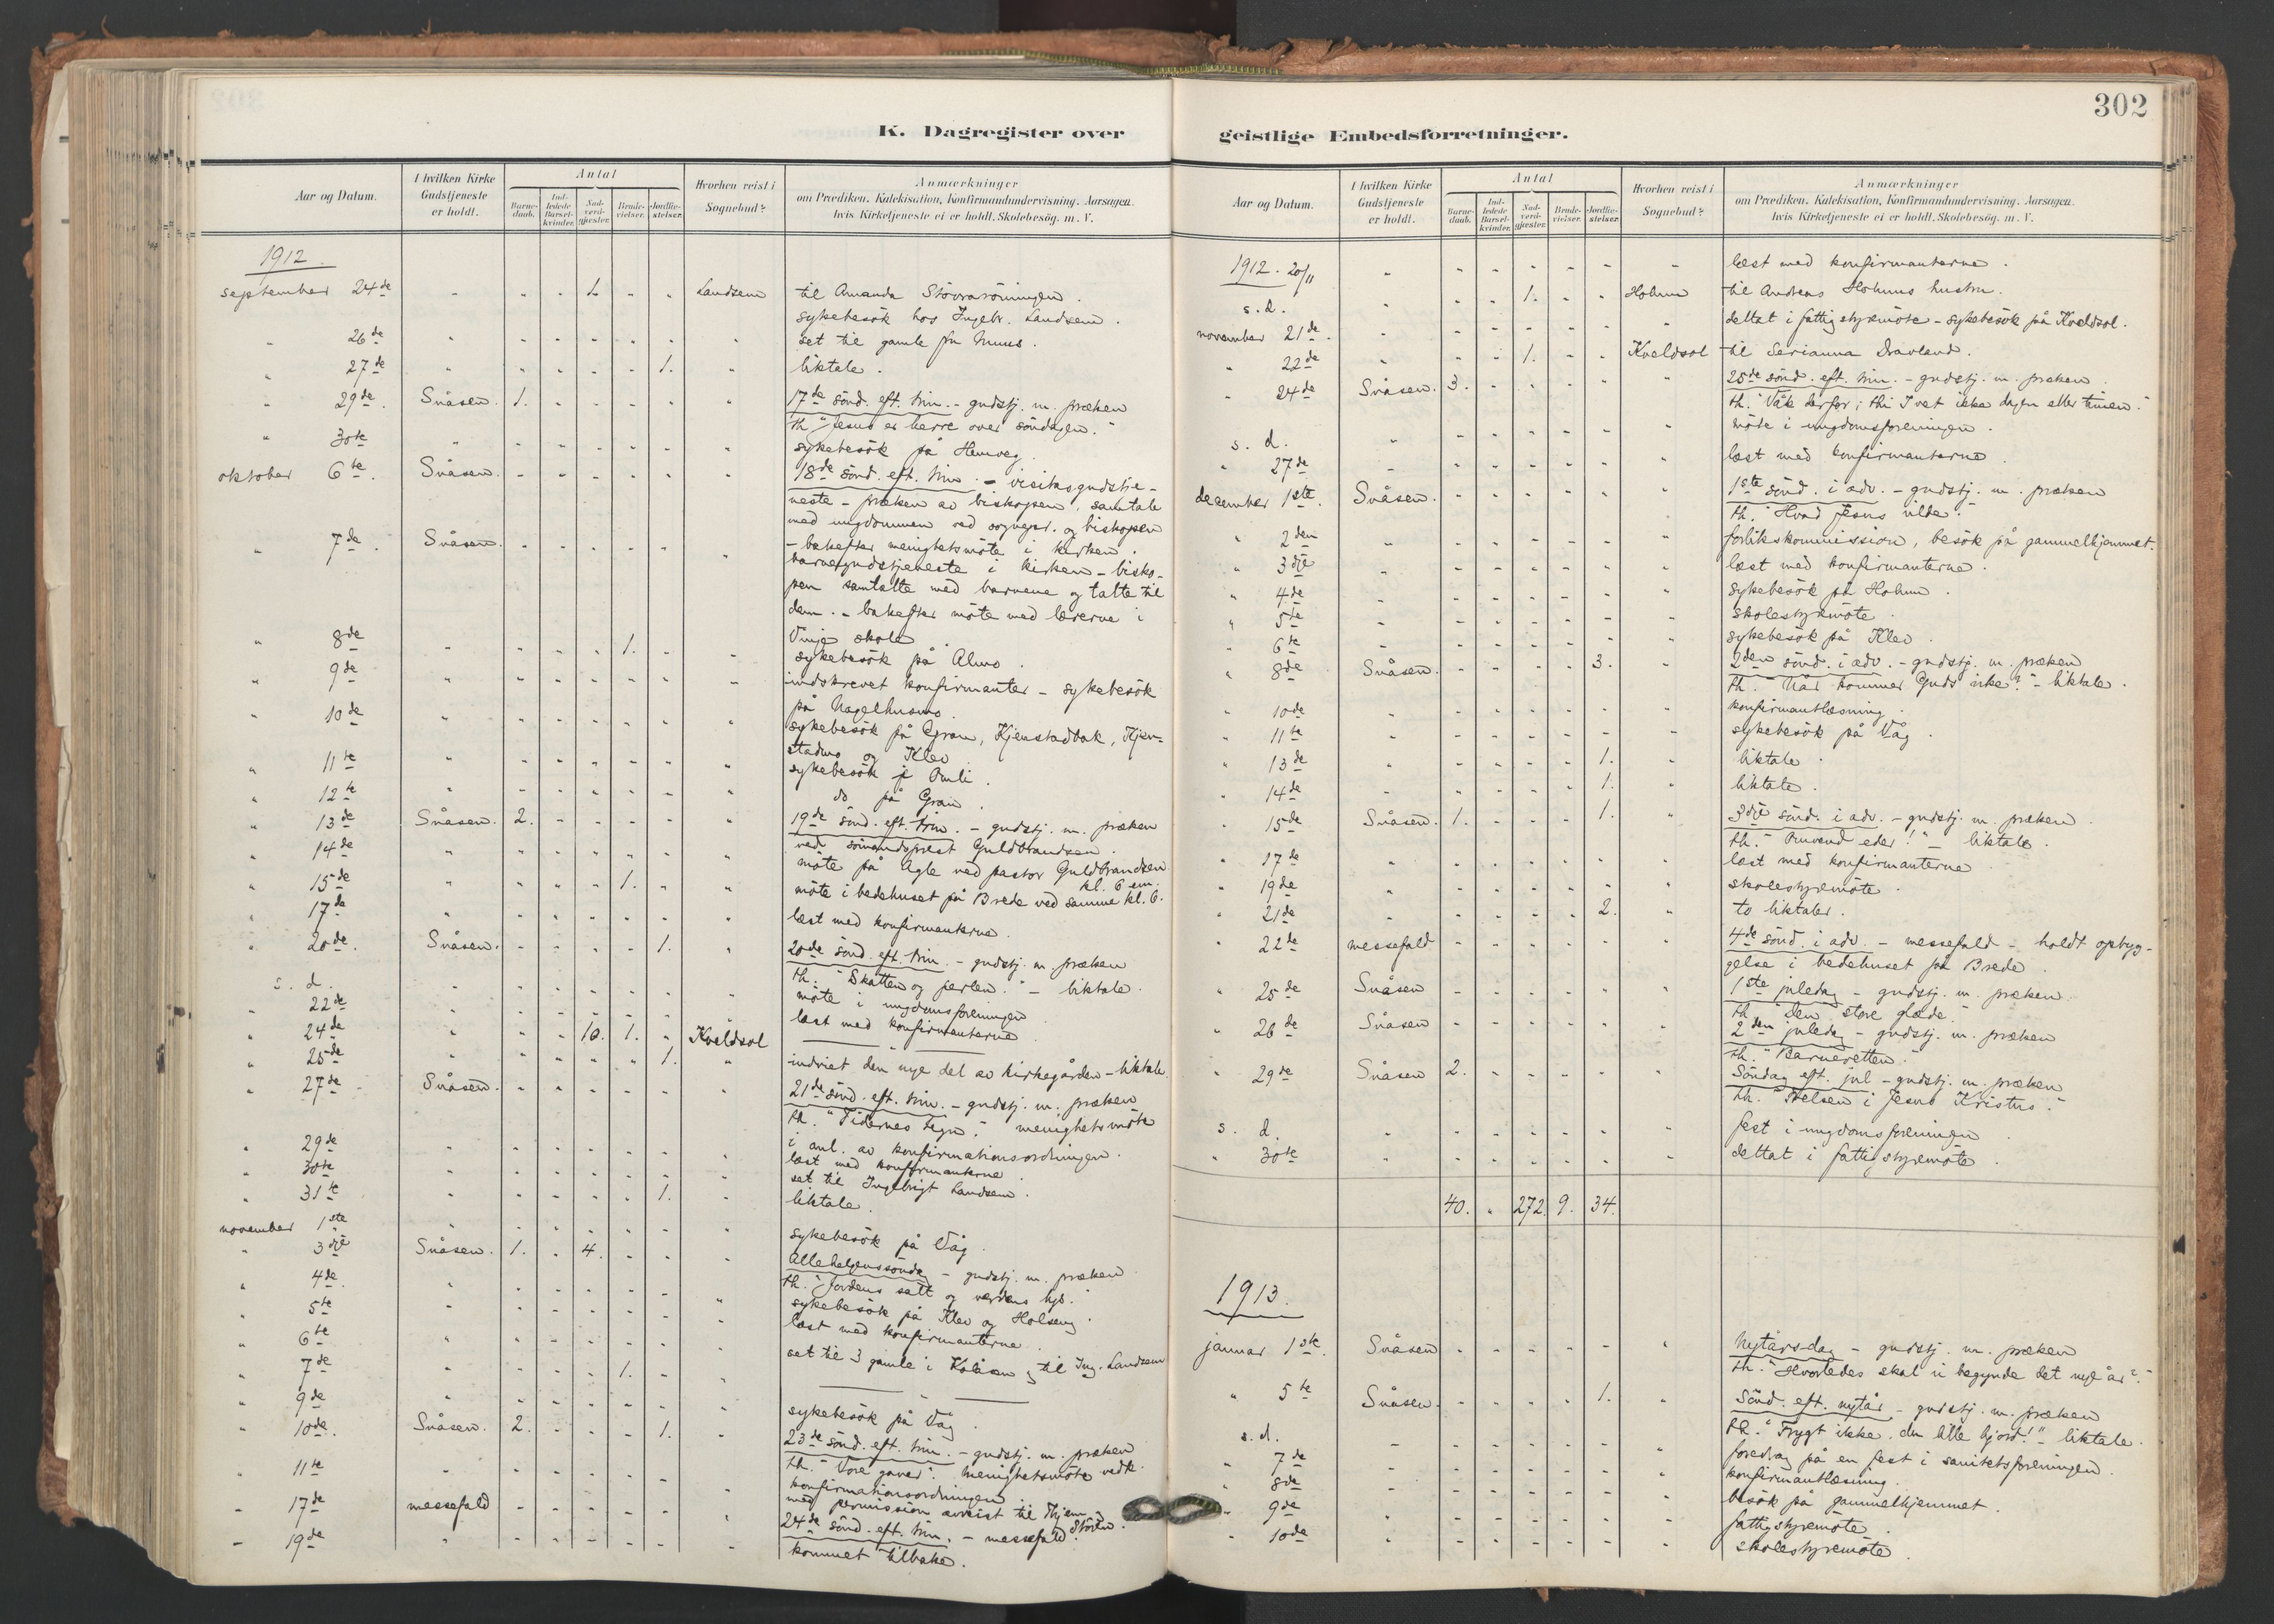 302
K. Dagregister over geistlige Embedsforretninger.
Aar og Datum. I hvilken Kirke Gudstjeneste er holdt. Antal Barne-daab. Ind-ledede Barsel-kvinder. Nad-verd-gjæster. Brude-vielser. Jordfæ-stelser. Hvorhen reist i Sognebud? Anmærkninger om Prædiken, Katekisation, Konfirmandundervisning, Aarsagen hvis Kirketjeneste ei er holdt, Skolebesøg. m. V.
1912.
september 24de Landsem til Amanda
sykebesök hos Ingebr. Landsem.
" 26de set til gamle fru Muus.
" 27de 1. liktale.
" 29de. Snåsen. 1. 17de sönd. eft. trin. - gudstj. m. præken
th. "Jesus er herre over söndagen."
" 30te sykebesök på
oktober 6te. Snåsen. 18de sönd. eft. trin. - visitasgudstje-
neste - præken av biskopen, samtale
med ungdommen ved sognepr. og biskopen
- bakefter menighetsmöte i kirken.
" 7de. Snåsen. barnegudstjeneste i kirken - bisko-
pen samtalte med barnene og talte til
dem. - bakefter möte med lærerne i
Vinje skole.
" 8de 1. sykebesök på Almo.
" 9de indskrevet konfirmanter - sykebesök
på
" 10de sykebesök på Gran, Kjenstadbak, Kjen-
stadmo og Klev.
" 11te sykebesök i
" 12te do på Gran.
" 13de Snåsen. 2. 19de sönd. eft. trin. - gudstj. m. præken
ved sömandsprest Guldbrandsen.
" 14de möte på Agle ved pastor Guldbrandsen
kl. 6 em.
" 15de 1. möte i bedehuset på Brede ved samme kl. 6.
" 17de læst med konfirmanterne.
" 20de. Snåsen. 1. 20de sönd. eft. trin. - gudstj. m. præken
th. "Skatten og perlen." - liktale.
s. d. möte i ungdomsforeningen
" 22de læst med konfirmanterne
" 24de 10. 1. Kveldsol
" 25de 1. indviet den nye del av kirkegården - liktale.
" 27de Snåsen. 21de sönd. eft. trin. - gudstj. m. præken
th. "Tidernes tegn." menighetsmöte
i anl. av konfirmationsordningen.
" 29de læst med konfirmanterne
" 30te set til Ingebrigt Landsem.
" 31te 1. liktale.
november 1ste sykebesök på Våg.
" 3dje Snåsen. 1. 4. Allehelgenssöndag - gudstj. m. præken
th. "Jordens salt og verdens lys."
" 4de. sykebesök på Klev og Holseng.
" 5te læst med konfirmanterne.
" 6te set til 3 gamle i og til Ing. Landsem
" 7de 1.
" 9de sykebesök på Våg.
" 10de. Snåsen. 2. 1. 23de sönd. eft. trin. - gudstj. m. præken
th. "Vore gaver". Menighetsmöte vedk.
konfirmationsordningen.
" 11te med permission avreist til
" 17de messefald 24de sönd. eft. trin. - messefald.
" 19de kommet tilbake.
Aar og Datum. I hvilken Kirke Gudstjeneste er holdt. Antal Barne-daab. Ind-ledede Barsel-kvinder. Nad-verd-gjæster. Brude-vielser. Jordfæ-stelser. Hvorhen reist i Sognebud? Anmærkninger om Prædiken, Katekisation, Konfirmandundervisning, Aarsagen hvis Kirketjeneste ei er holdt, Skolebesøg. m. V.
1912. 20/11 læst med konfirmanterne.
s. d. 1. Holum til Andreas Holums hustru.
november 21de. deltat i fattigstyremöte - sykebesök på Kveldsol.
" 22de 1. Kveldsol til Serianna
" 24de Snåsen. 3. 25de sönd. eft. trin. - gudstj. m. præken.
th. "Våk derfor; thi I vet ikke dagen eller timen."
s. d. möte i ungdomsforeningen.
" 27de læst med konfirmanterne.
december 1ste. Snåsen. 1ste sönd. i adv. - gudstj. m. præken
th. "Hvad Jesus vilde."
" 2den forlikskommission, besök på gammelhjemmet.
" 3dje læst med konfirmanterne.
" 4de sykebesök på Holum.
" 5te skolestyremöte
" 6te sykebesök på Klev.
" 8de Snåsen. 3. 2den sönd. i adv. - gudstj. m. præken
th. "Når kommer Guds rike?" - liktale.
" 10de konfirmantlæsning.
" 11te sykebesök på Våg.
" 13de 1. liktale.
" 14de 1. liktale.
" 15de Snåsen. 1. 1. 3dje sönd. i adv. - gudstj. m. præken.
th. "Omvend eder!" - liktale.
" 17de læst med konfirmanterne
" 19de skolestyremöte.
" 21de 2. to liktaler.
" 22de messefald 4de sönd. i adv. - messefald - holdt opbyg-
gelse i bedehuset på Brede.
" 25de Snåsen 1ste juledag - gudstj. m. præken.
th. "Den store glæde."
" 26de Snåsen 2den juledag - gudstj. m. præken
th. "Barneretten."
" 29de Snåsen 2. Söndag eft. jul - gudstj. m. præken
th. "Frelsen i Jesus Kristus."
s. d. fest i ungdomsforeningen.
" 30te deltat i fattigstyremöte.
40. " 272. 9. 34.
1913.
januar 1ste. Snåsen Nytårsdag - gudstj. m. præken
th. "Hvorledes skal vi begynde det nye år?"
" 5te Snåsen. 1. Sönd. eft. nytår - gudstj. m. præken
th. "Frygt ikke, du lille hjord!" - liktale.
s. d. foredrag på en fest i sanitetsforeningen.
" 7de konfirmantlæsning.
" 8de besök på gammelhjemmet.
" 9de fattigstyremöte.
" 10de skolestyremöte.